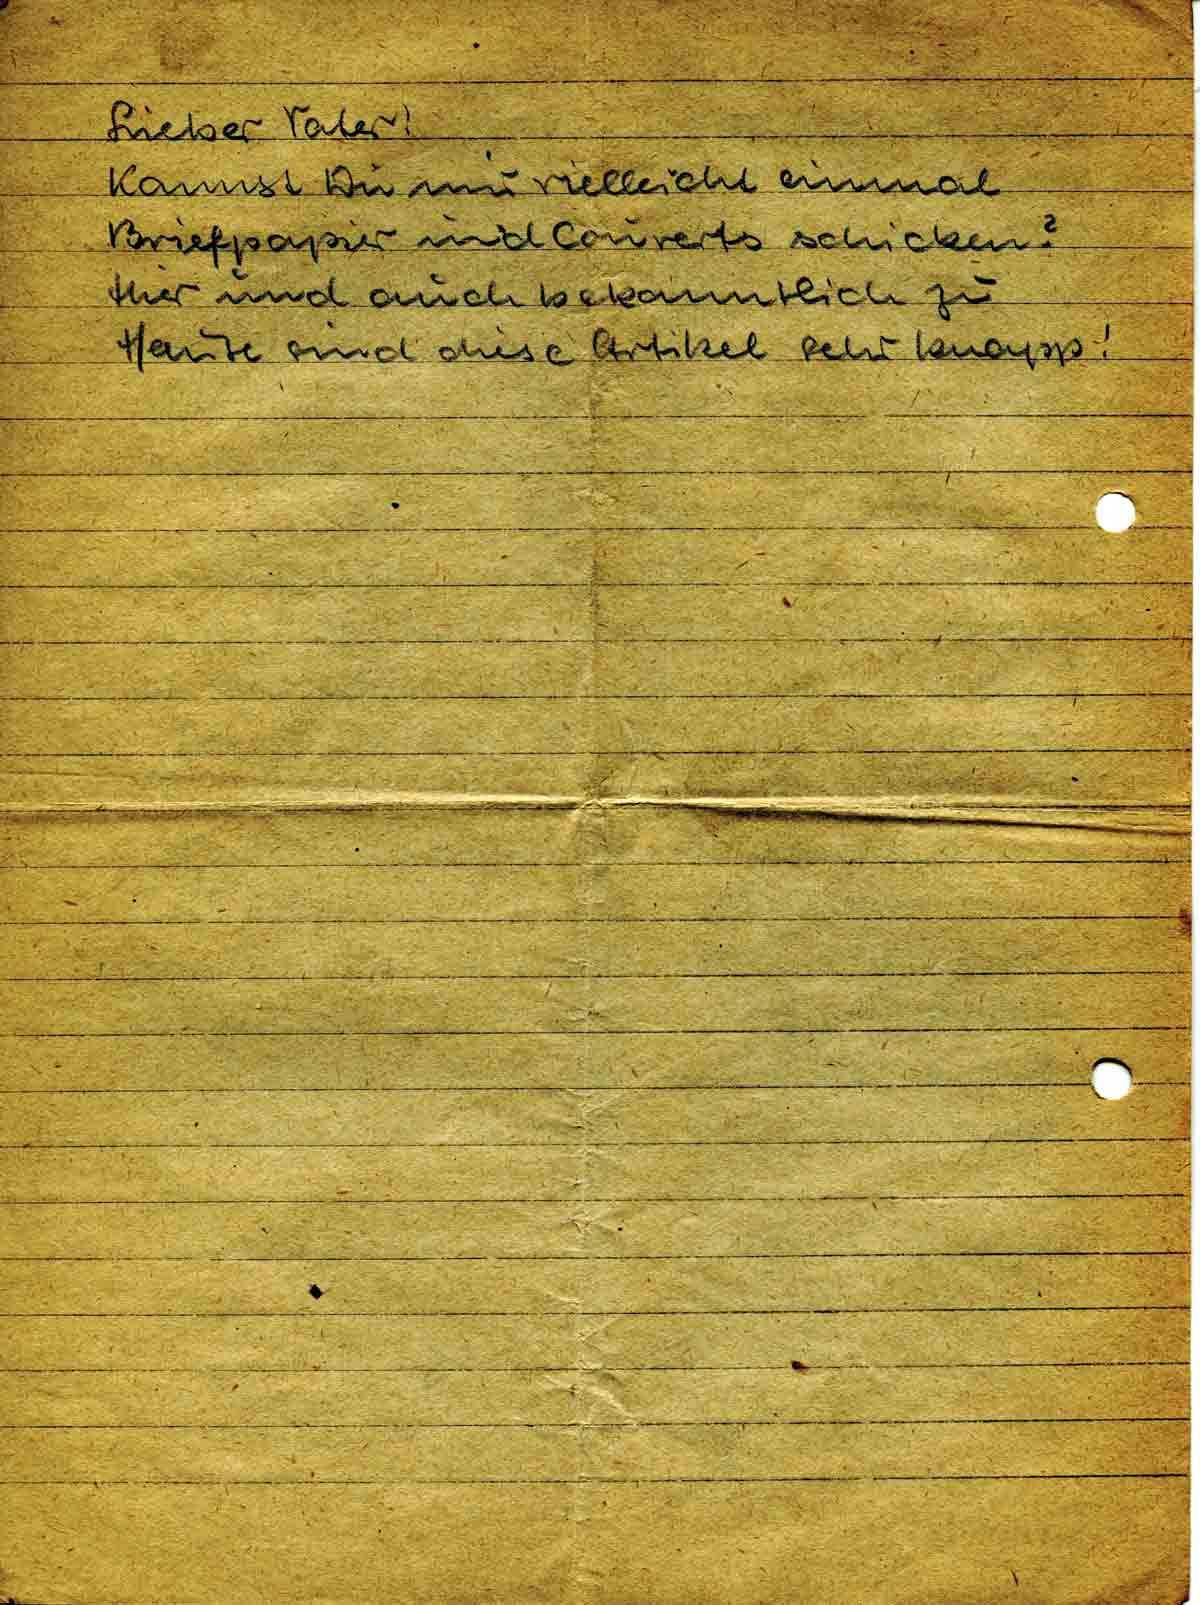 Lieber Vater!
Kannst Du mir vielleicht einmal
Briefpapier und Couverts schicken?
Hier und auch bekanntlich zu
Hause sind diese Artikel sehr knapp!